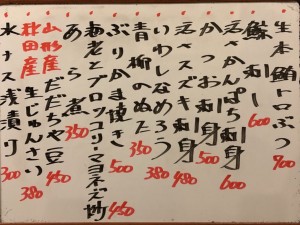 生本鮪トロぶつ 900
鯨刺し 600
活さかんぱち刺身 600
かつお刺身 500
活スズキ刺身 480
いわしなめろう 380
青柳のぬた 350
ぶりかま焼き 500
海老とブロッコリーマヨネーズ炒 450
あら煮 350
山形産 だだちゃ豆 450
秋田産 生じゅんさい 380
水ナス浅漬り 300